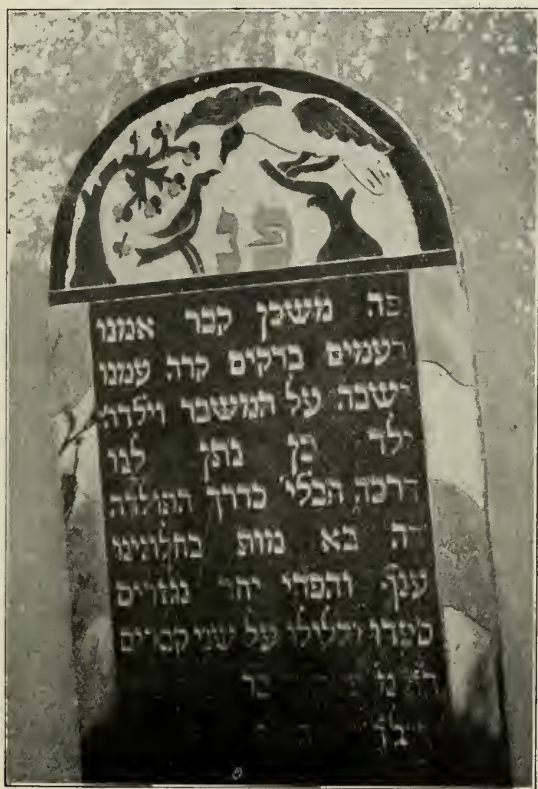 פ נ
פה משכן קבר אמנו
רעמים ברקים קרה עמנו
ישבה על המשבר וילדה
ילד בן נתן לנו
הרבה חבלי' כדרך התולדה
בא מות בחלונינו
ענף והפרי יחד נגזרים
ספדו והלילו על שני קברים